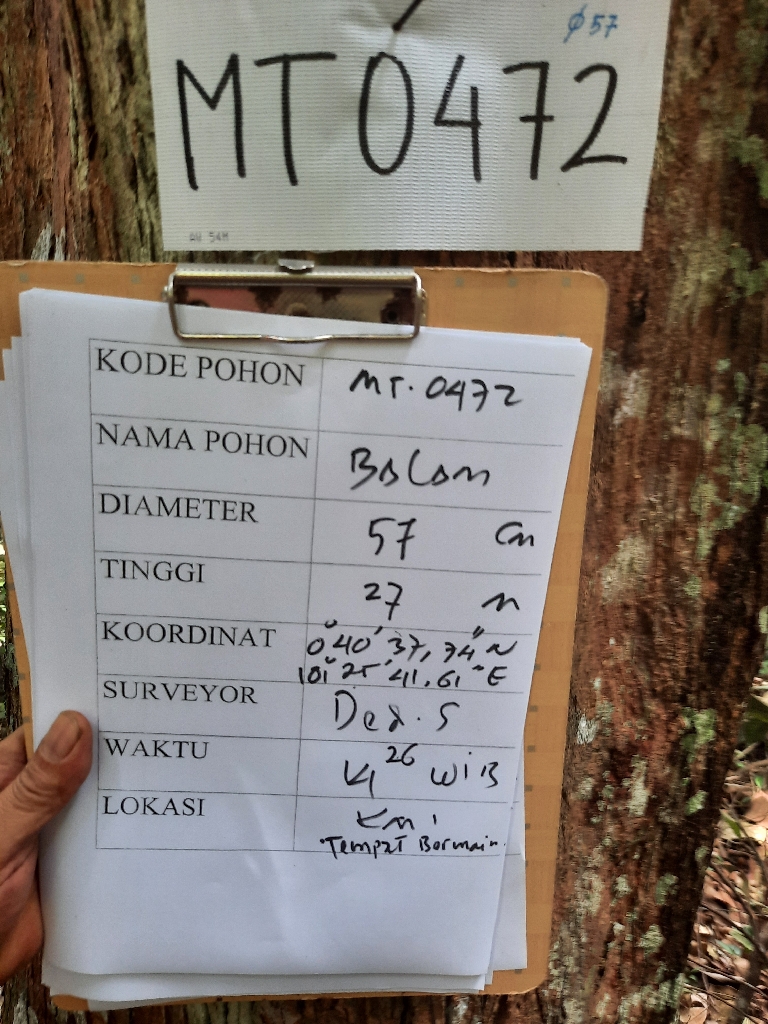 Ø 57
MT0472
KODE POHON MT. 0472
NAMA POHON Balam
DIAMETER 57 Cm
TINGGI 27 m
KOORDINAT 0° 40' 37,74" N
101° 25' 41,61" E
SURVEYOR Ded. S
WAKTU 26 WIB
LOKASI
Tempat Bermain